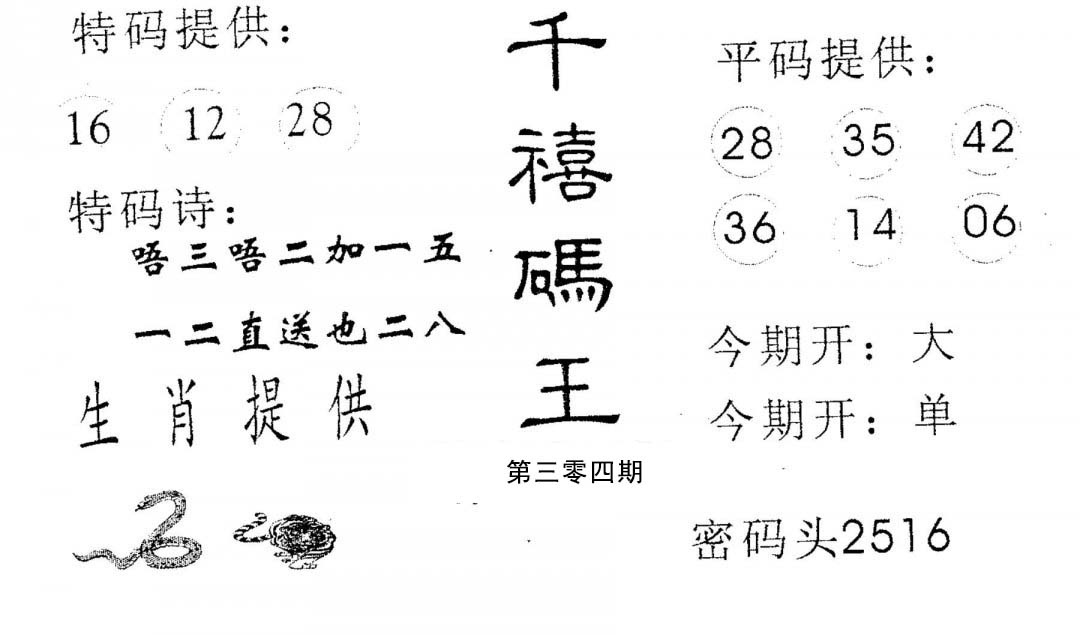 特码提供：
16 12 28
特码诗：
唔三唔二加一五
一二直送也二八
生肖提供
千禧碼王
第三零四期
平码提供：
28 35 42
36 14 06
今期开：大
今期开：单
密码头2516